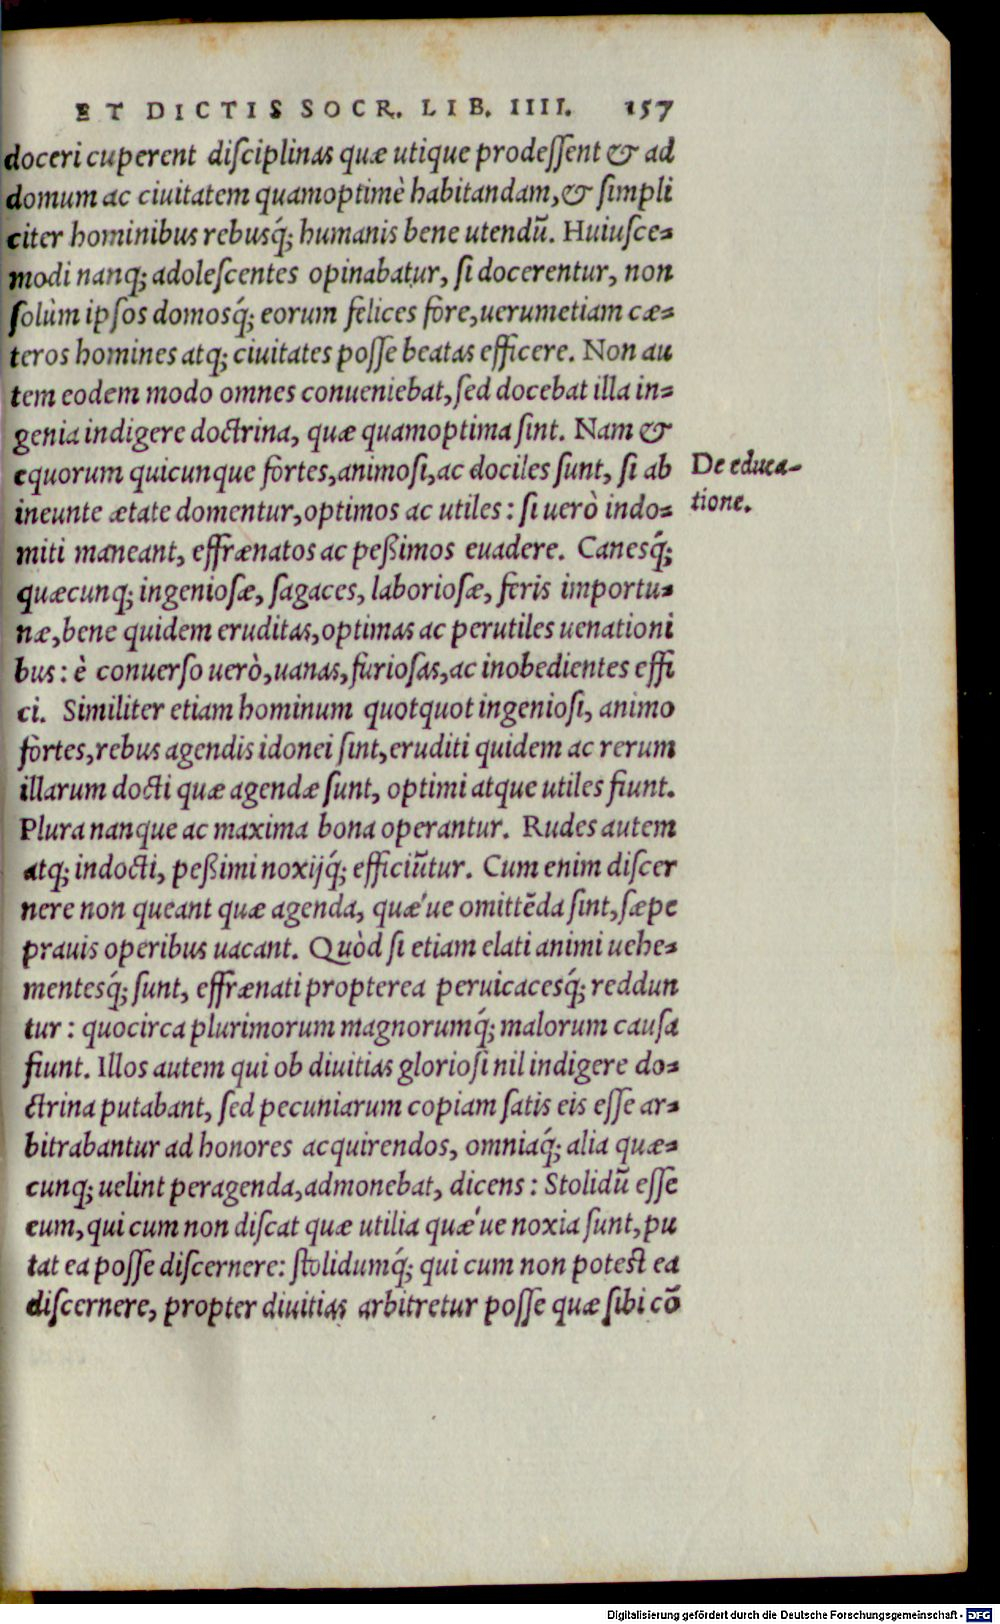 ET DICTIS SOCR. LIB. IIII. 157
doceri cuperent disciplinas quæ utique prodessent & ad
domum ac ciuitatem quamoptimè habitandam, & simpli
citer hominibus rebusq́; humanis bene utendũ. Huiusce-
modi nanq; adolescentes opinabatur, si docerentur, non
solùm ipsos domosq́; eorum felices fore, uerumetiam cæ-
teros homines atq; ciuitates posse beatas efficere. Non au
tem eodem modo omnes conueniebat, sed docebat illa in-
genia indigere doctrina, quæ quamoptima sint. Nam &
equorum quicunque fortes, animosi, ac dociles sunt, si ab
De educa-
tione.
ineunte ætate domentur, optimos ac utiles: si uerò indo-
miti maneant, effrænatos ac peßimos euadere. Canesq́;
quæcunq; ingeniosæ, sagaces, laboriosæ, feris importu-
næ, bene quidem eruditas, optimas ac perutiles uenationi
bus: è conuerso uerò, uanas, furiosas, ac inobedientes effi
ci. Similiter etiam hominum quotquot ingeniosi, animo
fortes, rebus agendis idonei sint, eruditi quidem ac rerum
illarum docti quæ agendæ sunt, optimi atque utiles fiunt.
Plura nanque ac maxima bona operantur. Rudes autem
atq; indocti, peßimi noxijq́; efficiũtur. Cum enim discer
nere non queant quæ agenda, quæ'ue omittẽda sint, sæpe
prauis operibus uacant. Quòd si etiam elati animi uehe-
mentesq́; sunt, effrænati propterea peruicacesq́; reddun
tur: quocirca plurimorum magnorumq́; malorum causa
fiunt. Illos autem qui ob diuitias gloriosi nil indigere do-
ctrina putabant, sed pecuniarum copiam satis eis esse ar-
bitrabantur ad honores acquirendos, omniaq́; alia quæ-
cunq; uelint peragenda, admonebat, dicens: Stolidũ esse
eum, qui cum non discat quæ utilia quæ'ue noxia sunt, pu
tat ea posse discernere: stolidumq́; qui cum non potest ea
discernere, propter diuitias arbitretur posse quæ sibi cõ
Digitalisierung gefördert durch die Deutsche Forschungsgemeinschaft - DFG